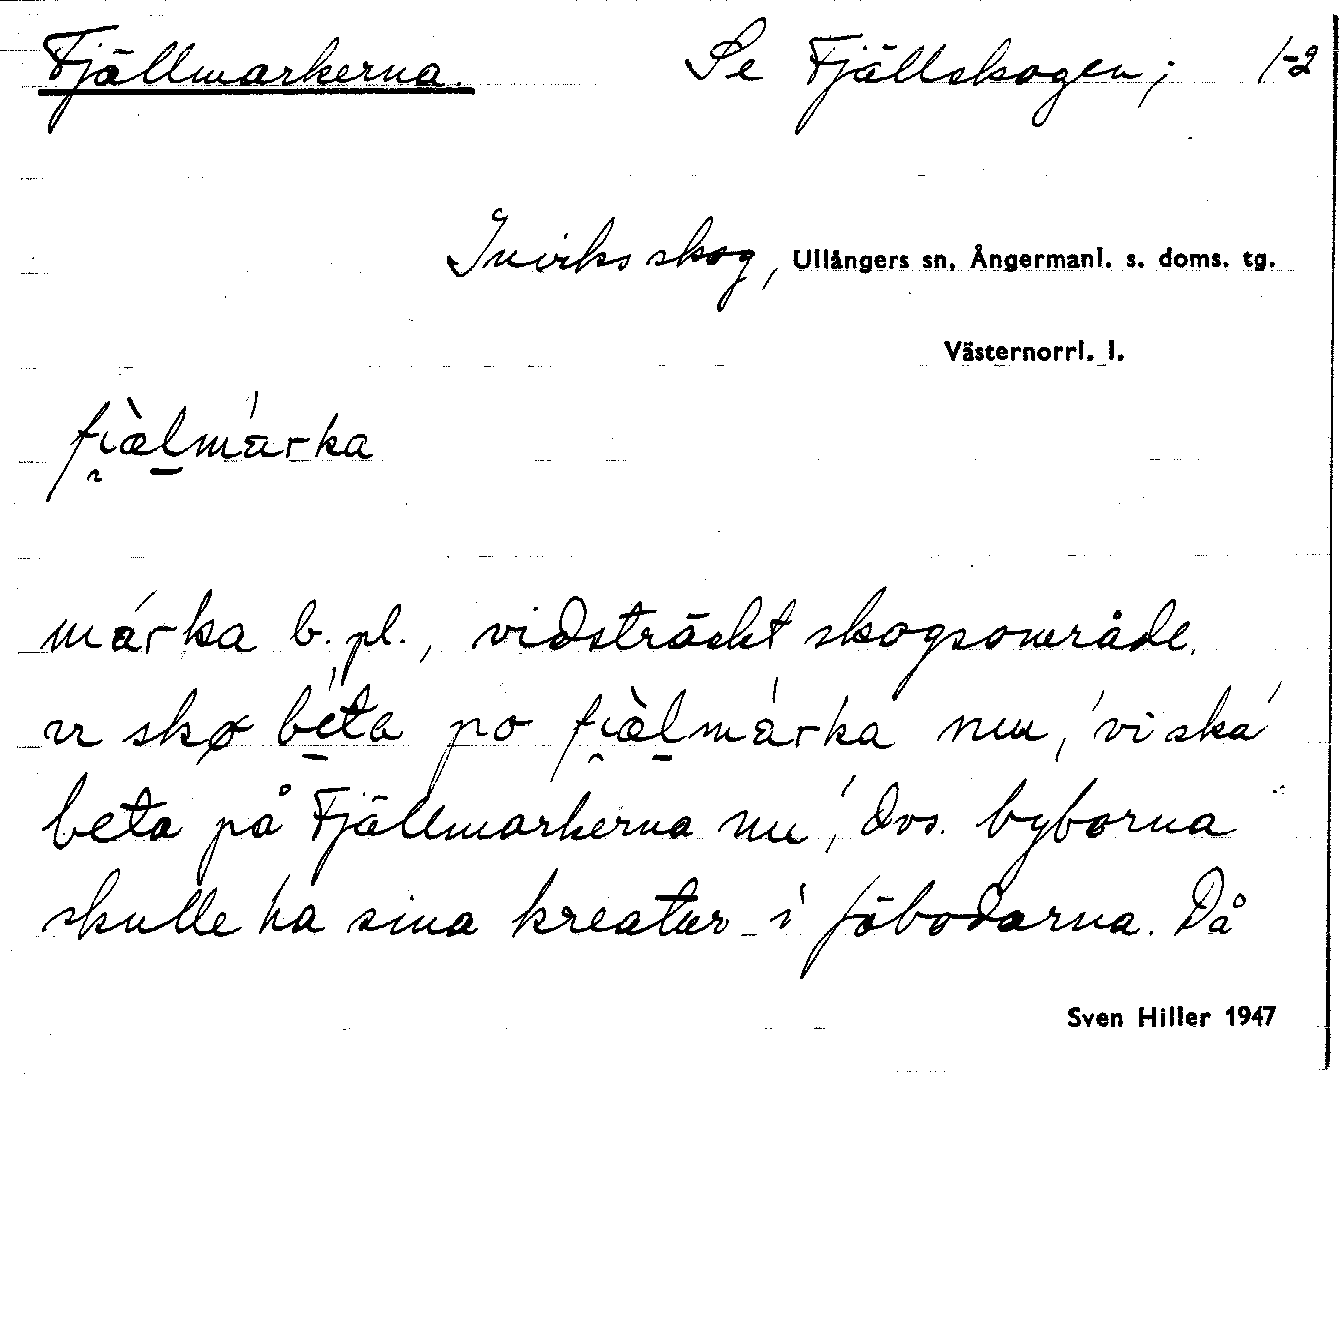 Fjällmarkerna. Se Fjällskogen; 1-2
Inviks skog, Ullångers sn, Ångermanl. s. doms. tg.
Västernorrl. l.
fi̯æ̀l̠márka
márka b. pl., vidsträckt skogsområde.
vɪ skø bé̠ta po fi̯æ̀l̠márka nuu, 'vi ska'
beta på Fjällmarkerna nu', dvs. byborna
skulle ha sina kreatur i fäbodarna. Då
Sven Hiller 1947